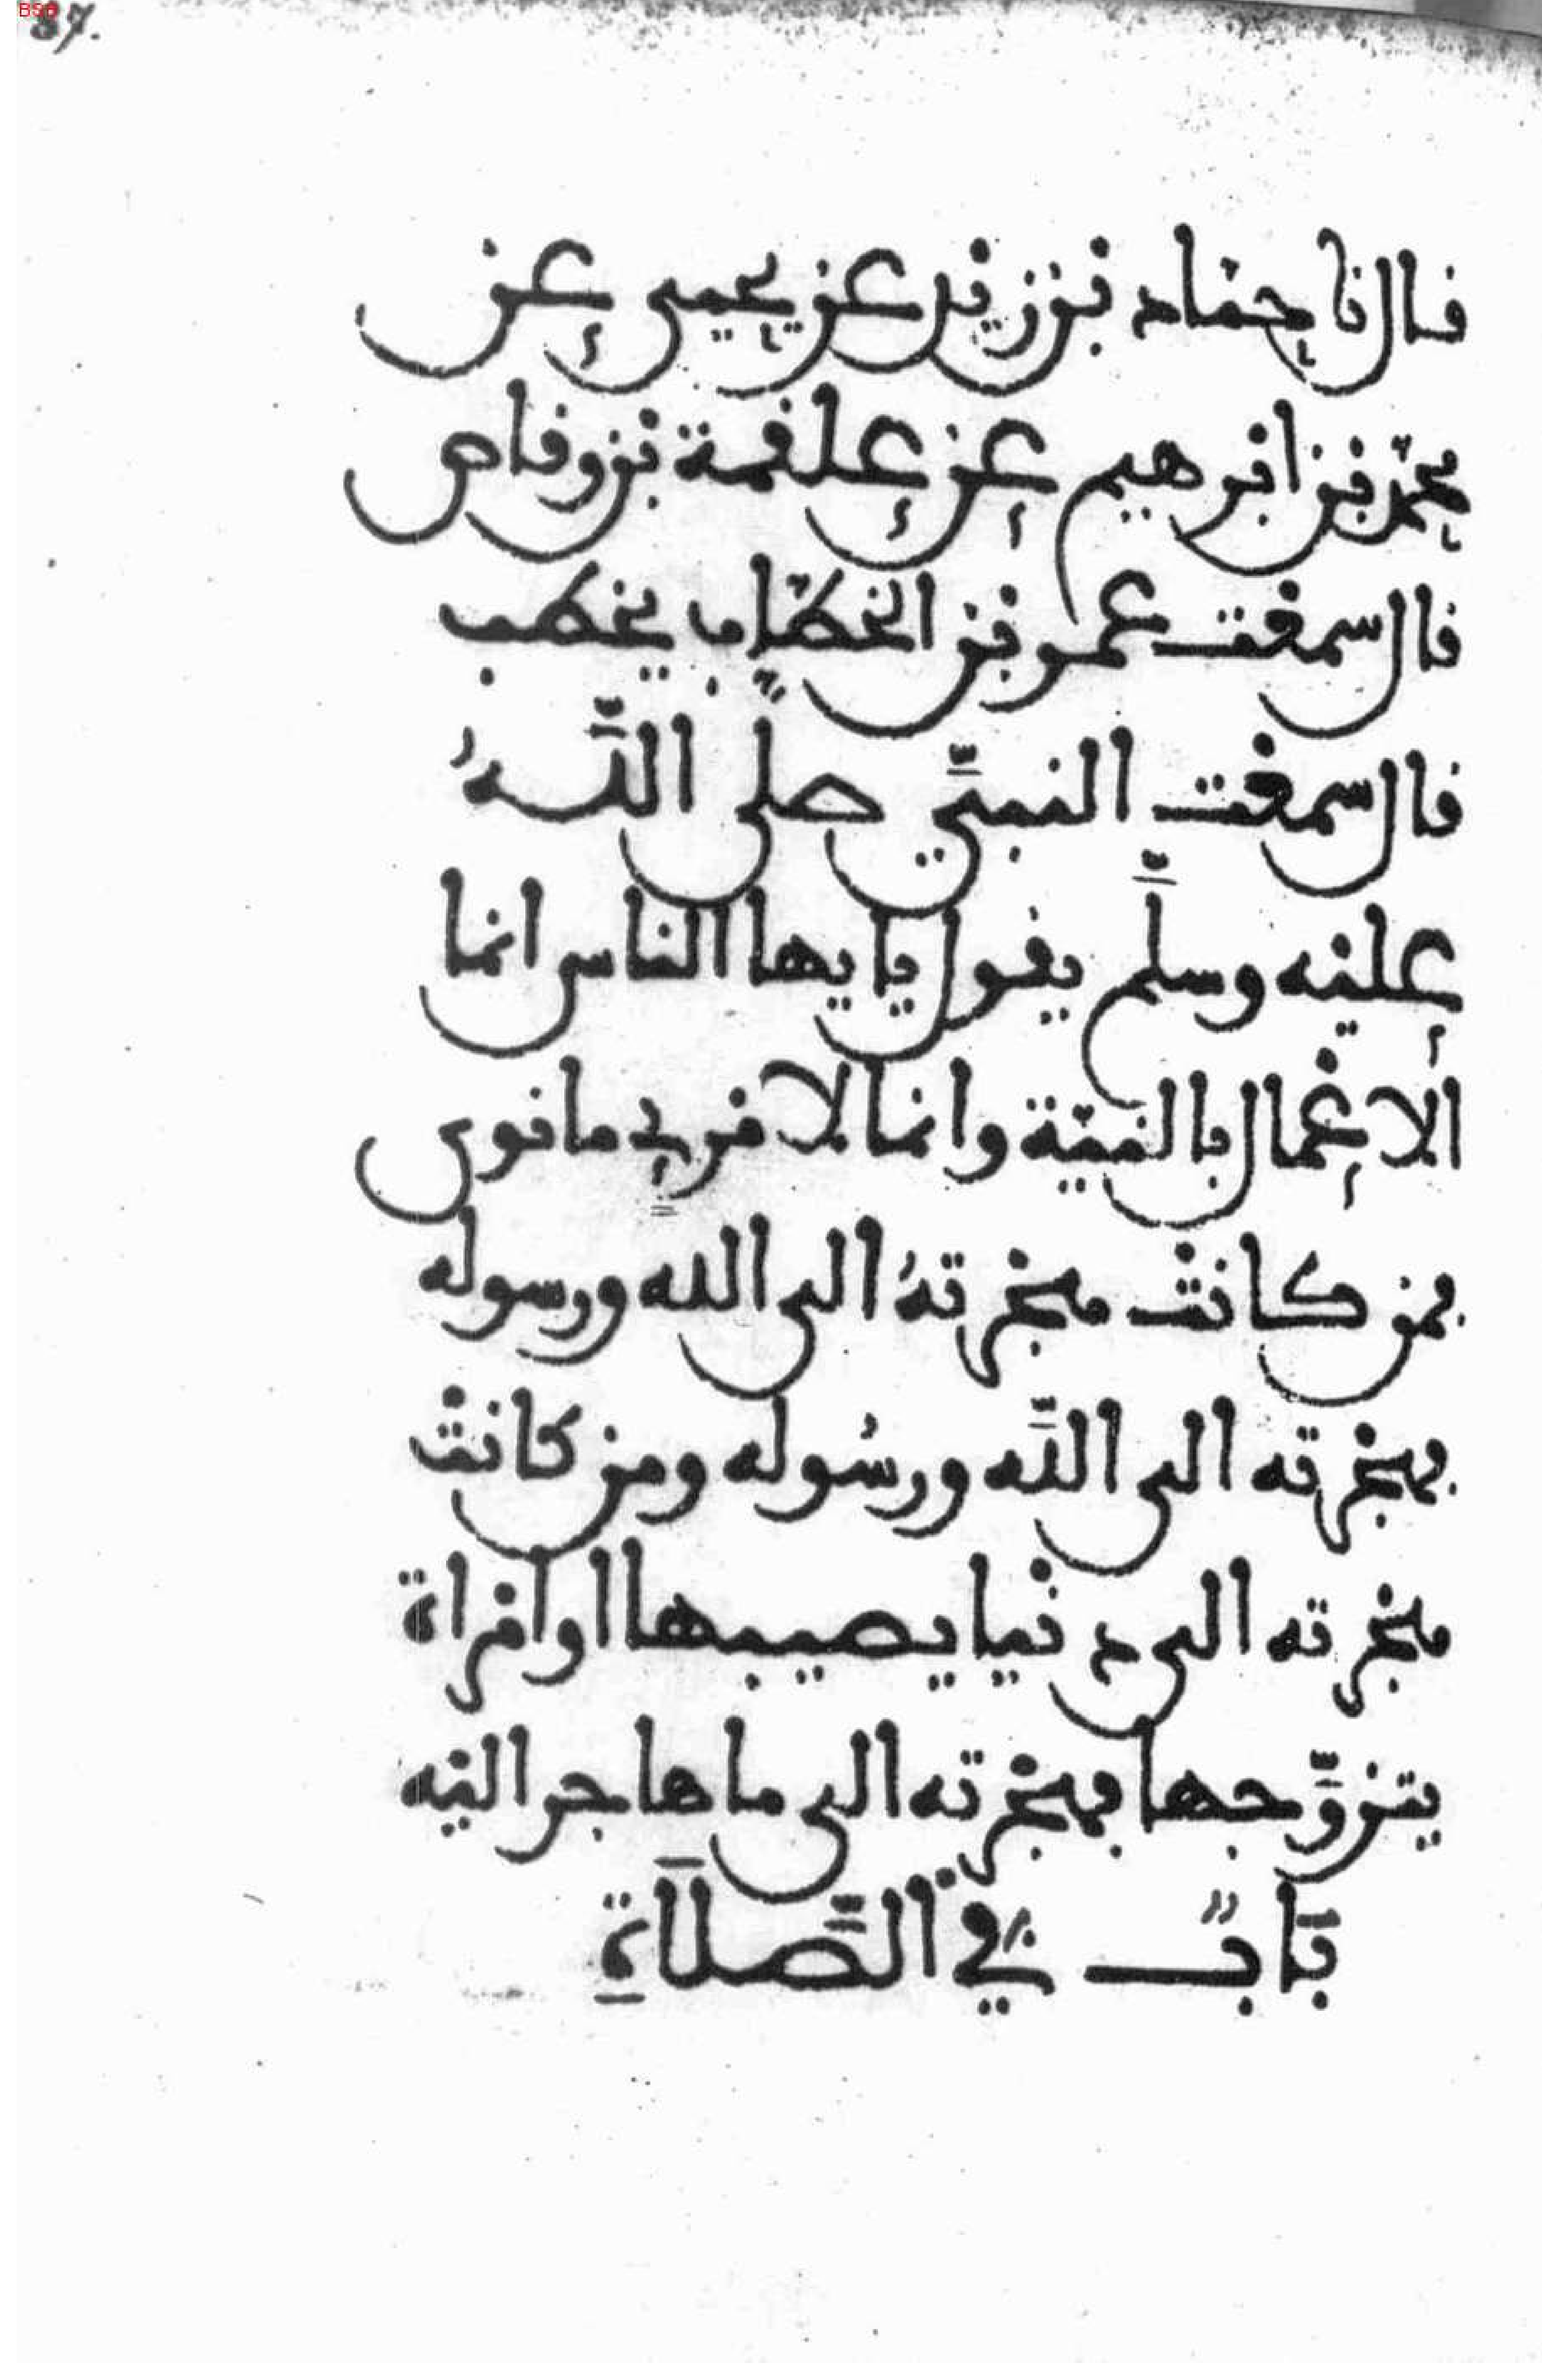 BSB
87.
قال نا حماد بن زيد عن يحيى عن
محمّد بن ابرهيم عن علقمة بن وقاص
قال سمعت عمر بن الخطّاب يخطب
قال سمعت النبيّ صلى اللّهُ
عليْه وسلّم يقول يايها الناس انما
الاعْمال بالنيّة وانما لامْرئٍ ما نوى
فمن كانتْ هجْرتهُ الى الله ورسوله
فهجْرته الى اللّه ورسُوله ومن كانتْ
هجْرته الى دنْيا يصيبها او امْراة
يتزوّجها فهجْرته الى ما هاجر اليْه
بَابٌ فِي الصَّلَاةِ